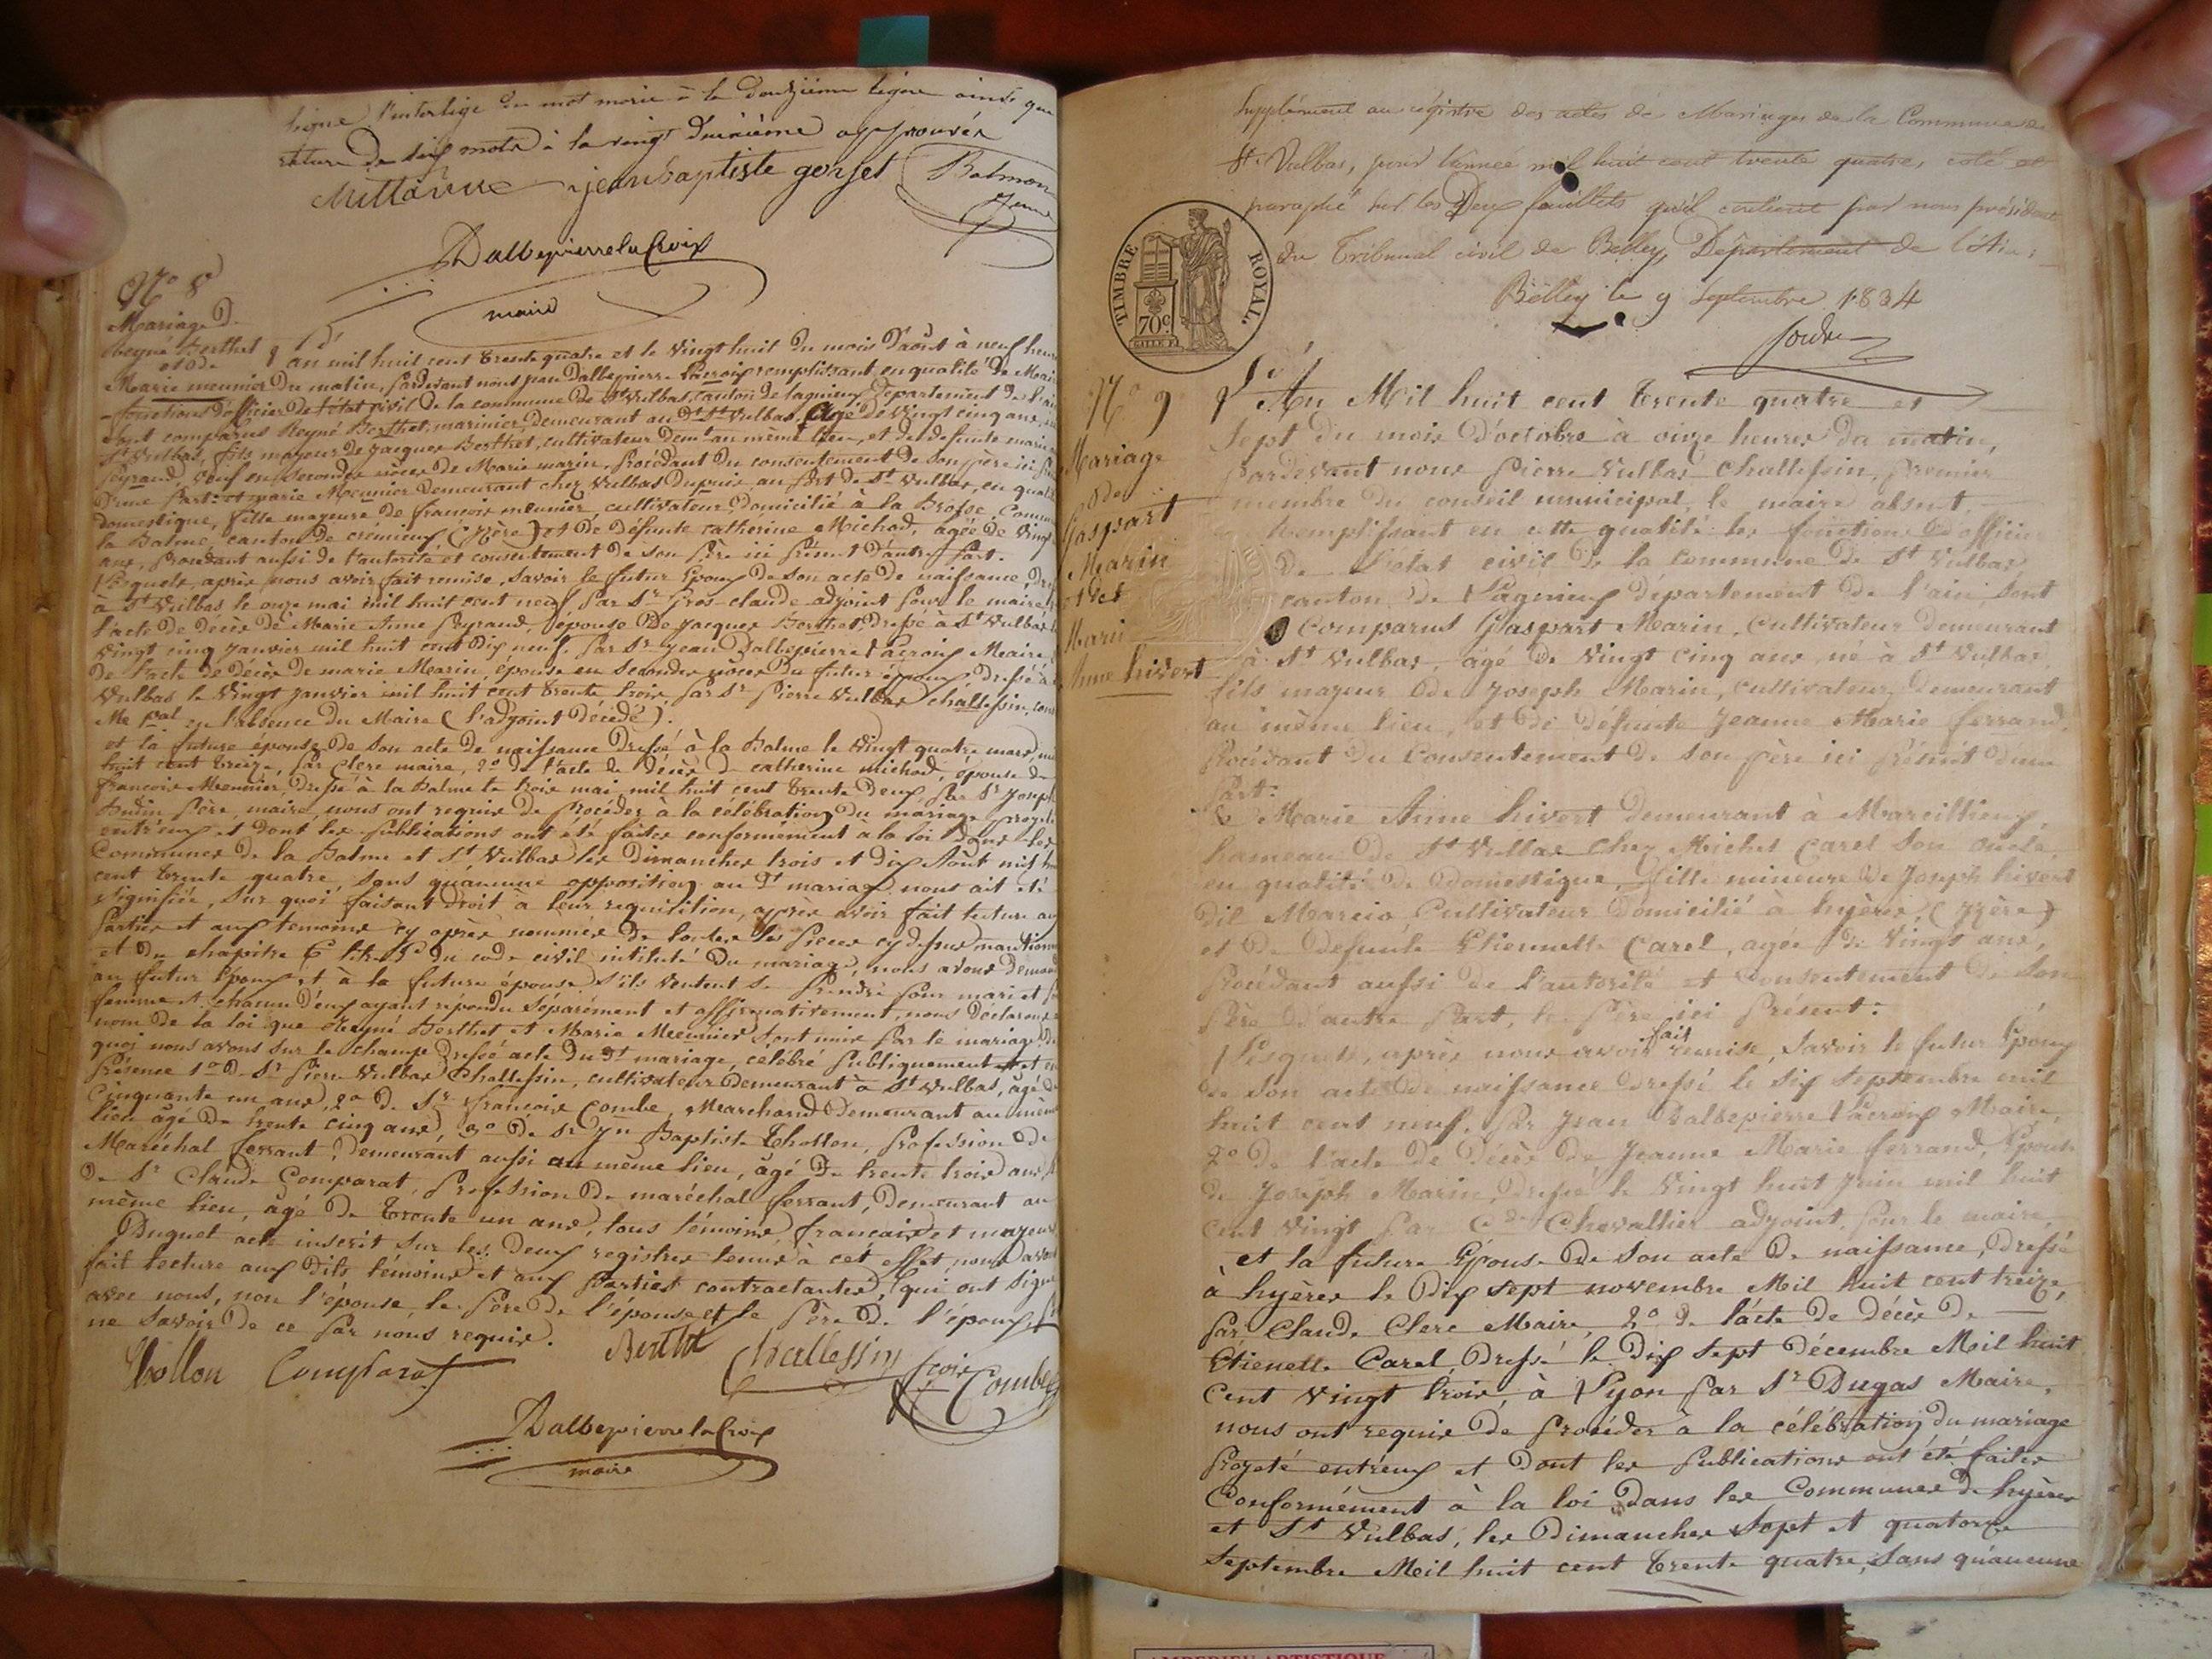 ligne l'interlige du mot marie à la douzième ligne ainsi que
rature de six mots à la vingt deuxième approuvés
Millanne jean baptiste gorjet Balmon
jeune
Dalbepierre la Croix
maire
N.o 8
Mariage D.
Reyné Berthet
et de
Marie meunier
L'an mil huit cent trente quatre et le vingt huit du mois d'août à neuf heures
du matin, pardevant nous jean Dalbepierre Lacroix remplissant en qualité de Maire
fonctions d'officier de l'état civil de la commune de St Vulbas, canton de lagnieu, Departement de l'ain
sont comparus Reyné Berthet, marinier, demeurant au dt St Vulbas, Agé de vingt cinq ans,
St Vulbas, fils majeur de jacques Berthet, cultivateur demt au même lieu, et de defunte marie
Peyraud, veuf en secondes noces de Marie marin, procédant du consentement de son père ici
D'une part: et marie Meunier demeurant chez Vulbas Dupuis, au port de St Vulbas, en qualité
domestique, fille majeure de francois meunier, cultivateur domicilié à la Brosse, Commune
la Balme, canton de crémieux (Izère) et de défunte catherine Michod, agée de vingt
ans, procédant aussi de l'autorité et consentement de son père ici présent d'autre part.
Lesquels, après nous avoir fait remise, savoir le futur Epoux de son acte de naissance, dressé
à St Vulbas le onze mai mil huit cent neuf, par Sr Gros-claude adjoint pour le maire
l'acte de décès de Marie Anne Peyraud, épouse de jacques Berthet, dressé à St Vulbas le
vingt cinq janvier mil huit cent dix neuf, par Sr jean Dalbepierre Lacroix Maire,
de l'acte de décès de marie Marin, épouse en secondes noces du futur époux, dressé à St
Vulbas le vingt janvier mil huit cent trente trois, par Sr pierre Vulbas challessin, cons
Me pal en l'absence du Maire (l'adjoint décédé).
et la future épouse de son acte de naissance dressé à la Balme le vingt quatre mars, mil
huit cent treize, par Clerc maire, 2o de l'acte de décès de catherine michod, épouse de
françois Meunier, dressé à la Balme le trois mai mil huit cent trente deux, par Sr joseph
père, maire, nous ont requis de procéder à la célébration du mariage projeté
entr'eux et dont les publications ont été faites conformement a la loi dans les
Communes de la Balme et St Vulbas les Dimanches trois et dix Août mil huit
cent trente quatre, sans qu'aucune opposition au dt mariage nous ait été
signifiée, sur quoi faisant droit à leur requisition, après avoir fait lecture aux
parties et aux temoins cy après nommés de toutes les pieces cy dessus mentionnées
et du chapitre 6 titre 5e du code civil intitulé Du mariage, nous avons demandé
au futur époux et à la future épouse s'ils veulent se prendre pour mari et pour
femme et chacun d'eux ayant répondu séparément et affirmativement, nous déclarons au
nom de la loi que Reyné Berthet et Marie Meunier sont unis par le mariage. De
quoi nous avons sur le champ dressé acte du dt mariage, célébré publiquement et en
présence 1o de Sr Pierre Vulbas Challessin, cultivateur demeurant à St Vulbas, âgé de
Cinquante un ans, 2o de Sr francois Combe, Marchand demeurant au même
lieu âgé de trente cinq ans, 3o de Sr Jn Baptiste Thollon, profession de
Maréchal ferrant, demeurant aussi au même lieu, âgé de trente trois ans,
de Sr Claude Comparat, profession de maréchal ferrant, demeurant au
même lieu, âgé de trente un ans, tous témoins, français et majeurs
Duquel acte inscrit sur les deux registres tenus à cet effet, nous avons
fait lecture aux dits témoins et aux parties contractantes, qui ont signé
avec nous, non l'épouse, le père de l'épouse et le père de l'époux,
ne savoir de ce par nous requis.
Thollon Comparat Berthet Challessin fcois Combe
Dalbepierre la Croix
maire
Supplément au régistre des actes de Mariages de la Commune de
St. Vulbas, pour l'année mil huit cent trente quatre, coté et
paraphé sur les deux feuillets qu'il contient par nous président
du Tribunal civil de Belley, Département de l'Ain:
Belley le 9 Septembre 1834
TIMBRE ROYAL.
70c.
N.o 9
Mariage
de
Gaspart
Marin
et de
Marie
Anne hivert
L'An Mil huit cent trente quatre et
Sept du mois d'octobre à onze heures du matin,
pardevant nous pierre Vulbas Challessin, premier
membre du conseil municipal, le maire absent,
Remplissant en cette qualité les fonctions d'officier
de l'état civil de la commune de St Vulbas,
canton de Lagnieux département de l'ain, sont
Comparus Gaspart Marin, Cultivateur demeurant
à St Vulbas, âgé de vingt cinq ans, né à St Vulbas,
fils majeur de Joseph Marin, cultivateur, demeurant
au même lieu, et de défunte Jeanne Marie ferrand,
procédant du consentement de son père ici présent d'une
part:
& Marie Anne hivert demeurant à Marcillieux,
hameau de St Vulbas chez Michel Carel son oncle
en qualité de domestique, fille mineure de Joseph hivert
dit Marcio Cultivateur domicilié à hyères, (Izère)
et de defunte Etiennette Carel, agée de vingt ans,
procédant aussi de l'autorité et consentement de son
père d'autre part, le père ici présent:
Lesquels, après nous avoir fait remise, savoir le futur Epoux
de son acte de naissance dressé le six septembre mil
huit cent neuf, par Jean Dalbepierre Lacroix Maire,
2o de l'acte de décès de Jeanne Marie ferrand, Epouse
de Joseph Marin, dressé le vingt huit juin mil huit
cent vingt par Chevallier adjoint, pour le maire,
et la future Epouse de son acte de naissance, dressé
à hyères le Dix sept novembre Mil huit cent treize,
par Claude Clerc Maire, 2o de l'acte de décès de
Etienette Carel, dressé le dix sept décembre Mil huit
cent vingt trois, à Lyon par Sr Dugas Maire,
nous ont requis de procéder à la célébration du mariage
projeté entr'eux et dont les publications ont été faites
Conformément à la loi dans les Communes de hyères
et St Vulbas, les Dimanches sept et quatorze
septembre Mil huit cent trente quatre, sans qu'aucune
AMBERIEU ARTISTIQUE